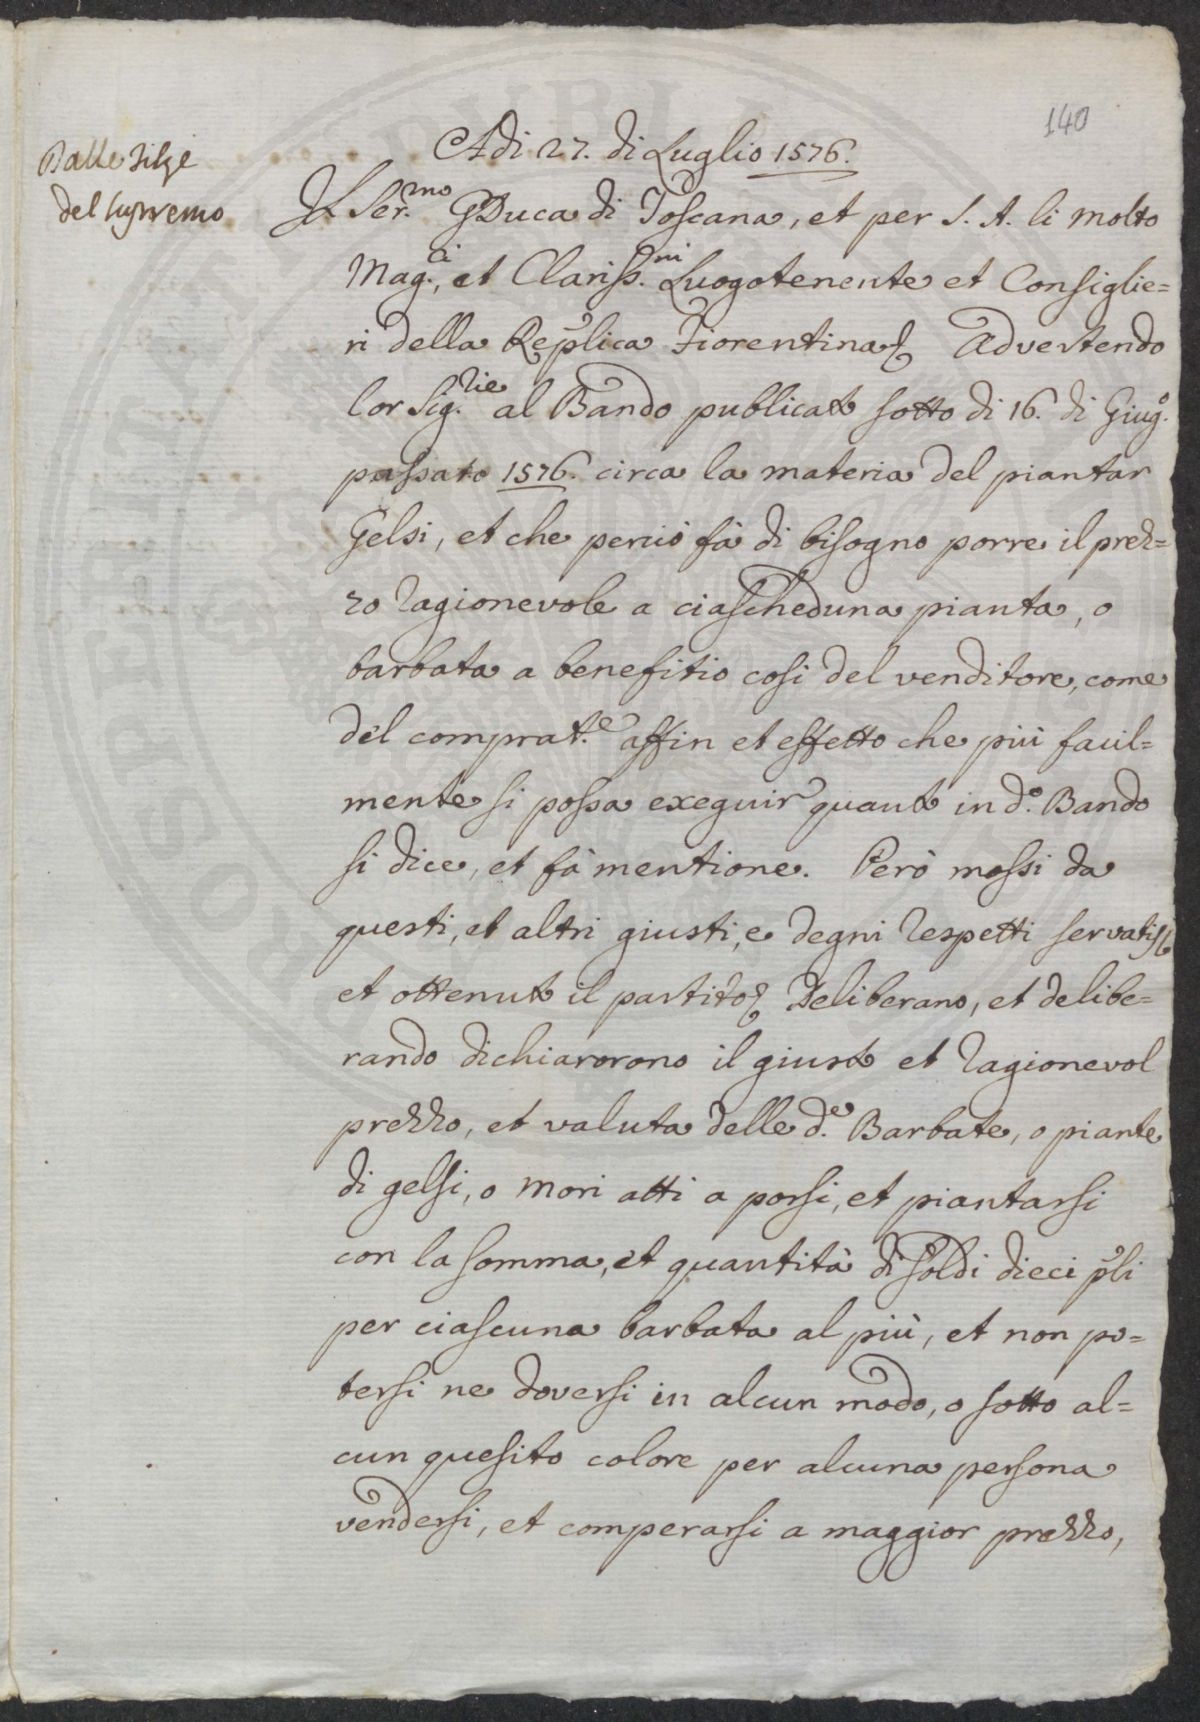 140
Dalle Filze
del Supremo
Adi 27. di Luglio 1576.
Il Ser.mo GDuca di Toscana, et per S. A. li Molto
Mag.ci, et Clariss.mi Luogotenente et Consiglie=
ri della Replica Fiorentina Advertendo
lor Sig.rie al Bando publicato sotto di 16. di Giug.o
passato 1576. circa la materia del piantar
Gelsi, et che perciò fà di bisogno porre il prez=
zo ragionevole a ciascheduna pianta, o
barbata a benefitio cosi del venditore, come
del comprat.e affin et effetto che più facil=
mente si possa exeguir quanto in d.o Bando
si dice, et fà mentione. Però mossi da
questi, et altri giusti, e degni respetti servatis
et ottenuto il partito Deliberano, et delibe=
rando dichiarorono il giusto et ragionevol
prezzo, et valuta delle d.e Barbate, o piante
di gelsi, o mori atti a porsi, et piantarsi
con la somma, et quantità di soldi dieci pli
per ciascuna barbata al più, et non po=
tersi ne doversi in alcun modo, o sotto al=
cun quesito colore per alcuna persona
vendersi, et comperarsi a maggior prezzo,